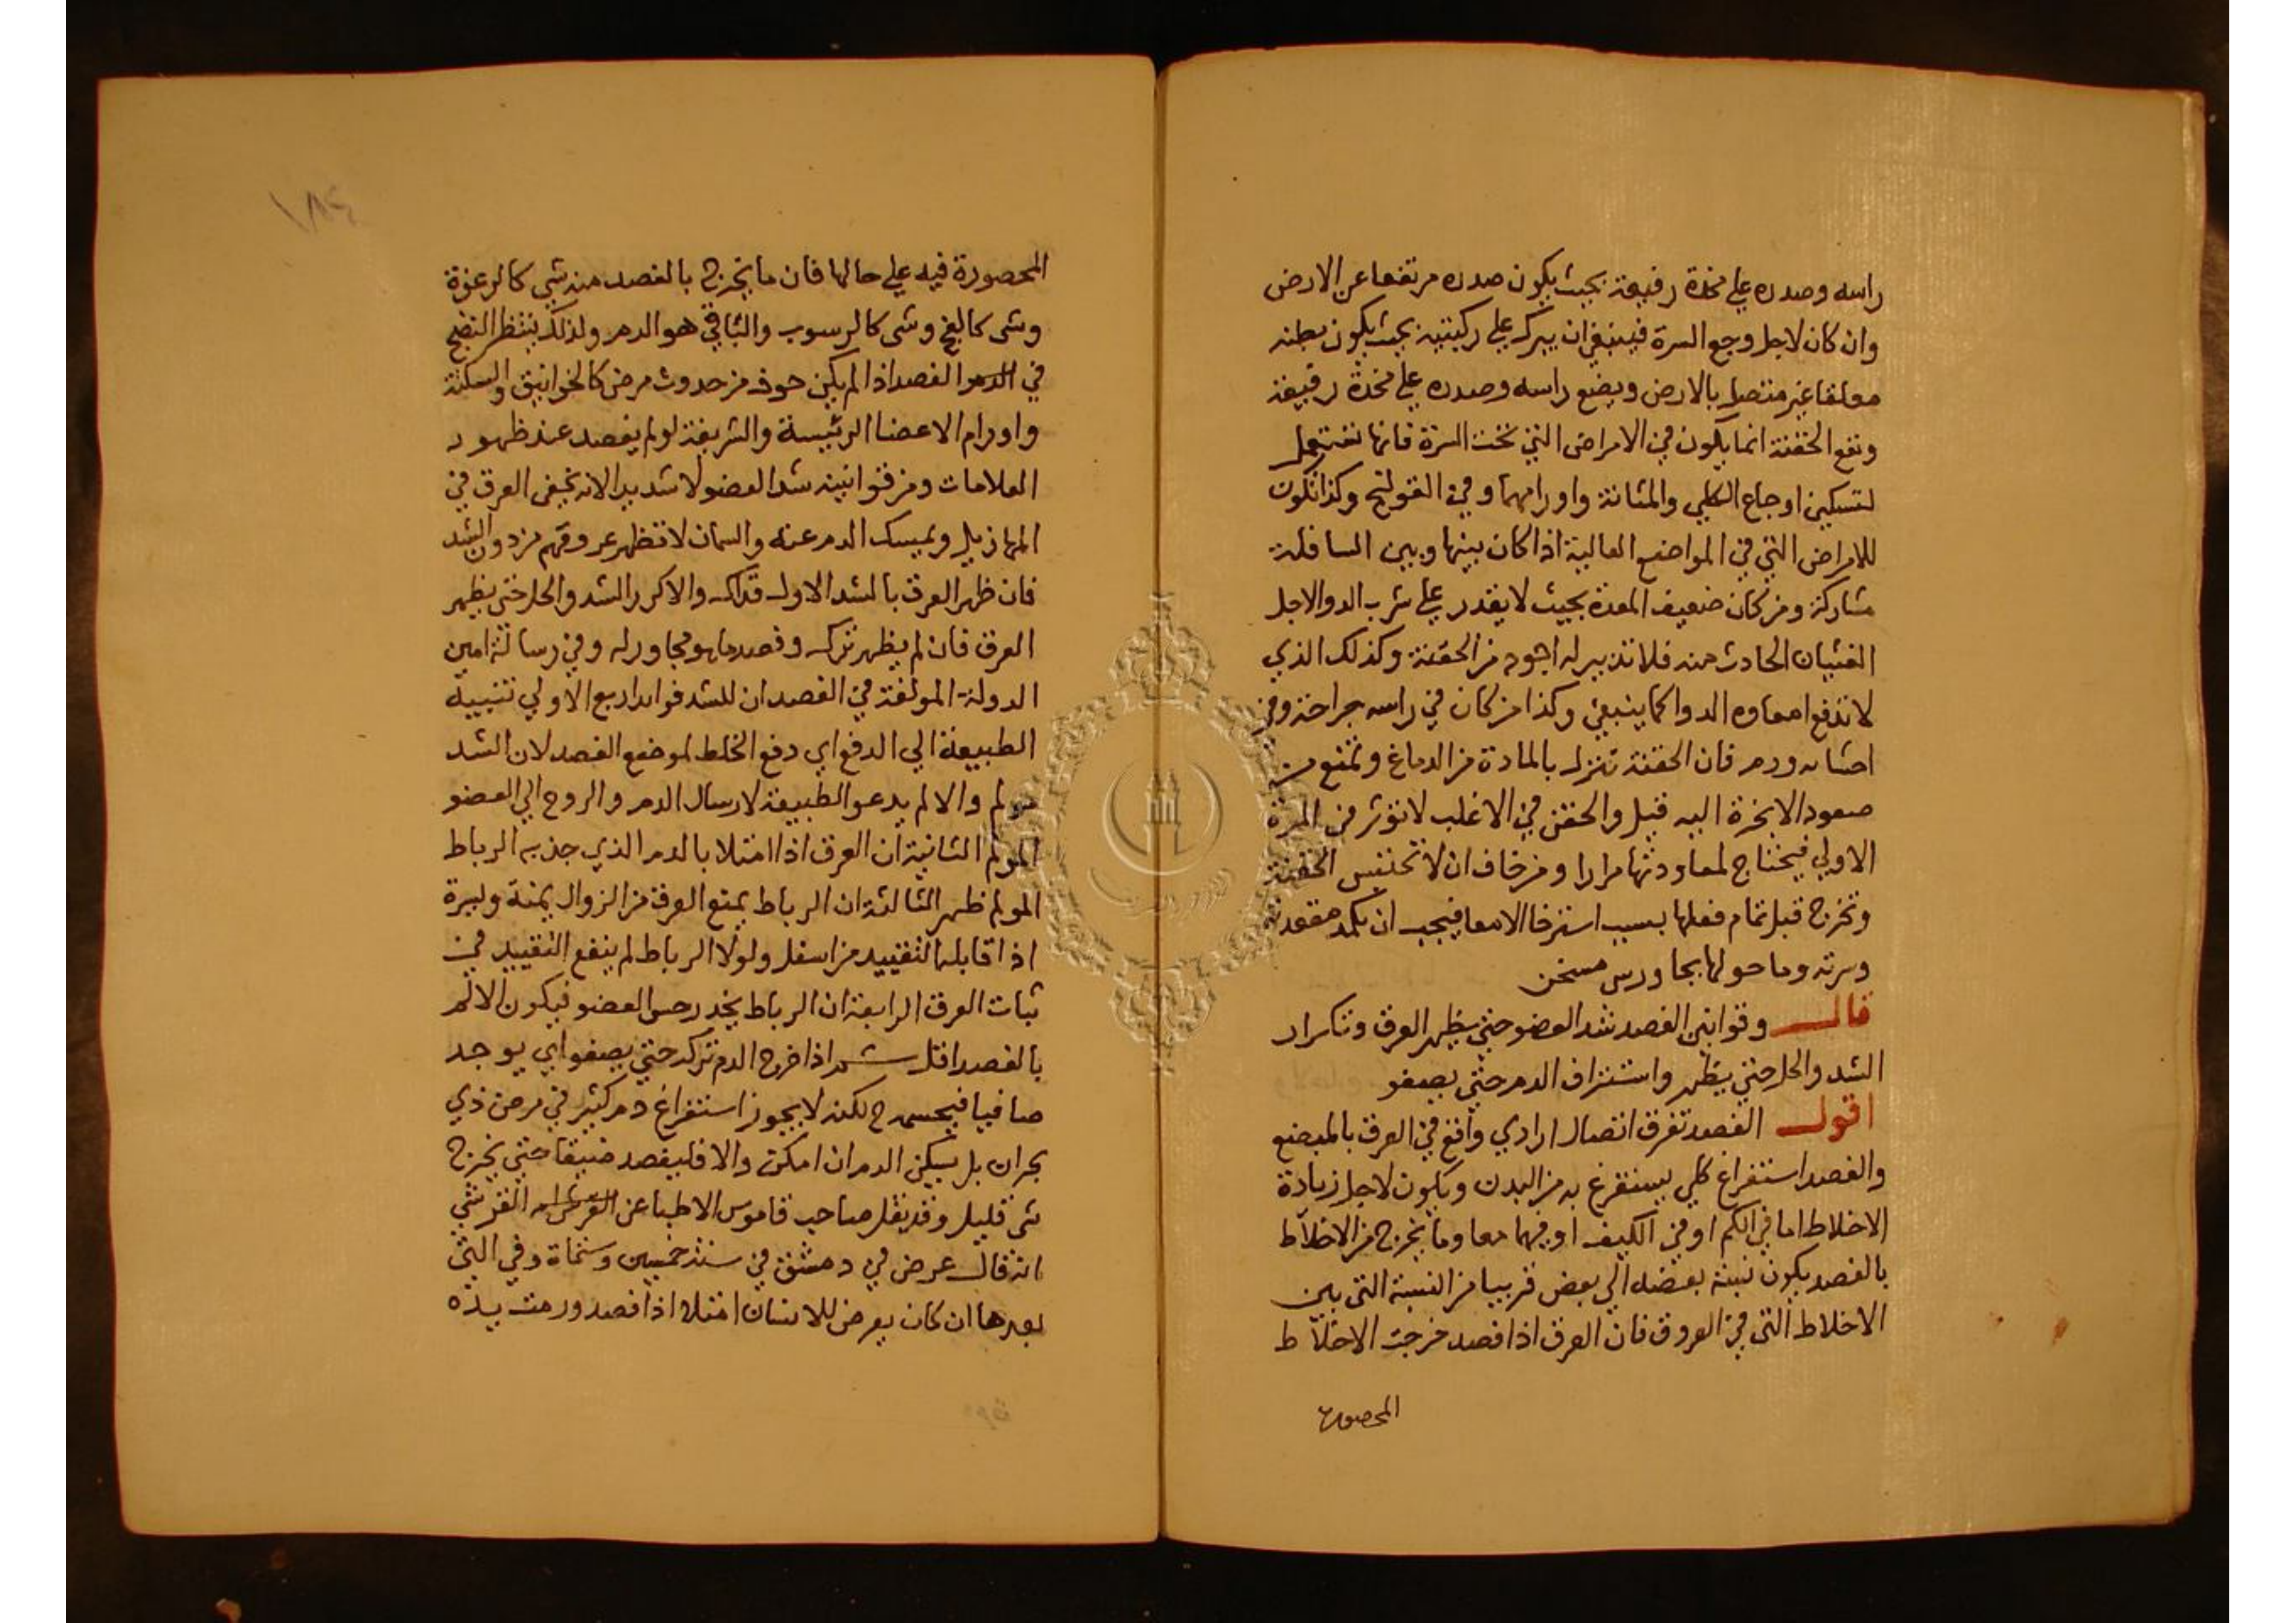 راسه وصدره على مخدة رفيعة بحيث يكون صدره مرتفعا عن الارض
وان كان لاجل وجع السرة فينبغي ان يبرك على ركبتيه بحيث يكون بطنه
معلقا غير متصل بالارض ويضع راسه وصدره على مخدة رفيعة
ونفع الحقنة انما يكون في الامراض التي تحت السرة فانها تستعمل
لتسكين اوجاع الكلي والمثانة واورامهما وفي القولنج وكذا تكون
للامراض التي في المواضع العالية اذا كان بينها وبين السافلة
مشاركة ومن كان ضعيف المعدة بحيث لا يقدر على شرب الدوا لاجل
الغثيان الحادث منه فلا تدبير له اجود من الحقنة وكذلك الذي
لا تدفع امعاوه الدوا كما ينبغي وكذا من كان في راسه جراحة وفي
احشايه ورم فان الحقنة تنزل بالمادة من الدماغ وتمنع من
صعود الابخرة اليه قيل والحقن في الاغلب لا توثر في المرة
الاولي فيحتاج لمعاودتها مرارا ومن خاف ان لا تحتبس الحقنة
وتخرج قبل تمام فعلها بسبب استرخا الامعا فيجب ان يكمد مقعدته
وسرته وما حولها بجاورس مسخن
قال وقوانين الفصد شد العضو حتي يظهر العرق وتكرار
الشد والحل حتي يظهر واستنزاف الدم حتي يصفو
اقول الفصد تفرق اتصال ارادي واقع في العرق بالمبضع
والفصد استفراغ كلي يستفرغ به من البدن ويكون لاجل زيادة
الاخلاط اما في الكم او في الكيف او فيهما معا وما يخرج من الاخلاط
بالفصد يكون نسبة بعضه الي بعض قريبا من النسبة التي بين
الاخلاط التي في العروق فان العرق اذا فصد خرجت الاخلاط
المحصورة
١٨٤
المحصورة فيه على حالها فان ما يخرج بالفصد منه شي كالرغوة
وشي كالفج وشي كالرسوب والباقي هو الدم ولذلك ينتظر النضج
في الدم الفصد اذا لم يكن خوف من حدوث مرض كالخوانيق والسكتة
واورام الاعضا الرئيسة والشريفة لو لم يفصد عند ظهور
العلامات ومن قوانينه شد العضو لا شديدا لانه يخفي العرق في
المهازيل ويمسك الدم عنه والسمان لا تظهر عروقهم من دون الشد
فان ظهر العرق بالشد الاول فذاك والا كرر الشد والحل حتي يظهر
العرق فان لم يظهر تركه وفصد ما هو مجاور له وفي رسالة امين
الدولة المولفة في الفصد ان للشد فوايد اربع الاولي تنبيه
الطبيعة الي الدفع اي دفع الخلط لموضع الفصد لان الشد
مولم والالم يدعو الطبيعة لارسال الدم والروح الي العضو
المولم الثانية ان العرق اذا امتلا بالدم الذي جذبه الرباط
المولم ظهر الثالثة ان الرباط يمنع العرق من الزوال يمنة ويسرة
اذا قابله التقييد من اسفل ولولا الرباط لم ينفع التقييد في
ثبات العرق الرابعة ان الرباط يخدر حس العضو فيكون الالم
بالفصد اقل ثم اذا خرج الدم تركه حتي يصفو اي يوجد
صافيا فيحسمه ح لكنه لا يجوز استفراغ دم كثير في مرض ذي
بحران بل يسكن الدم ان امكن والا فليفصد ضيقا حتي يخرج
شي قليل وقد نقل صاحب قاموس الاطبا عن القرشي
انه قال عرض في دمشق في سنة خمسين وستماة وفي التي
بعدها ان كان يعرض للانسان امتلا اذا فصد ورمت يده